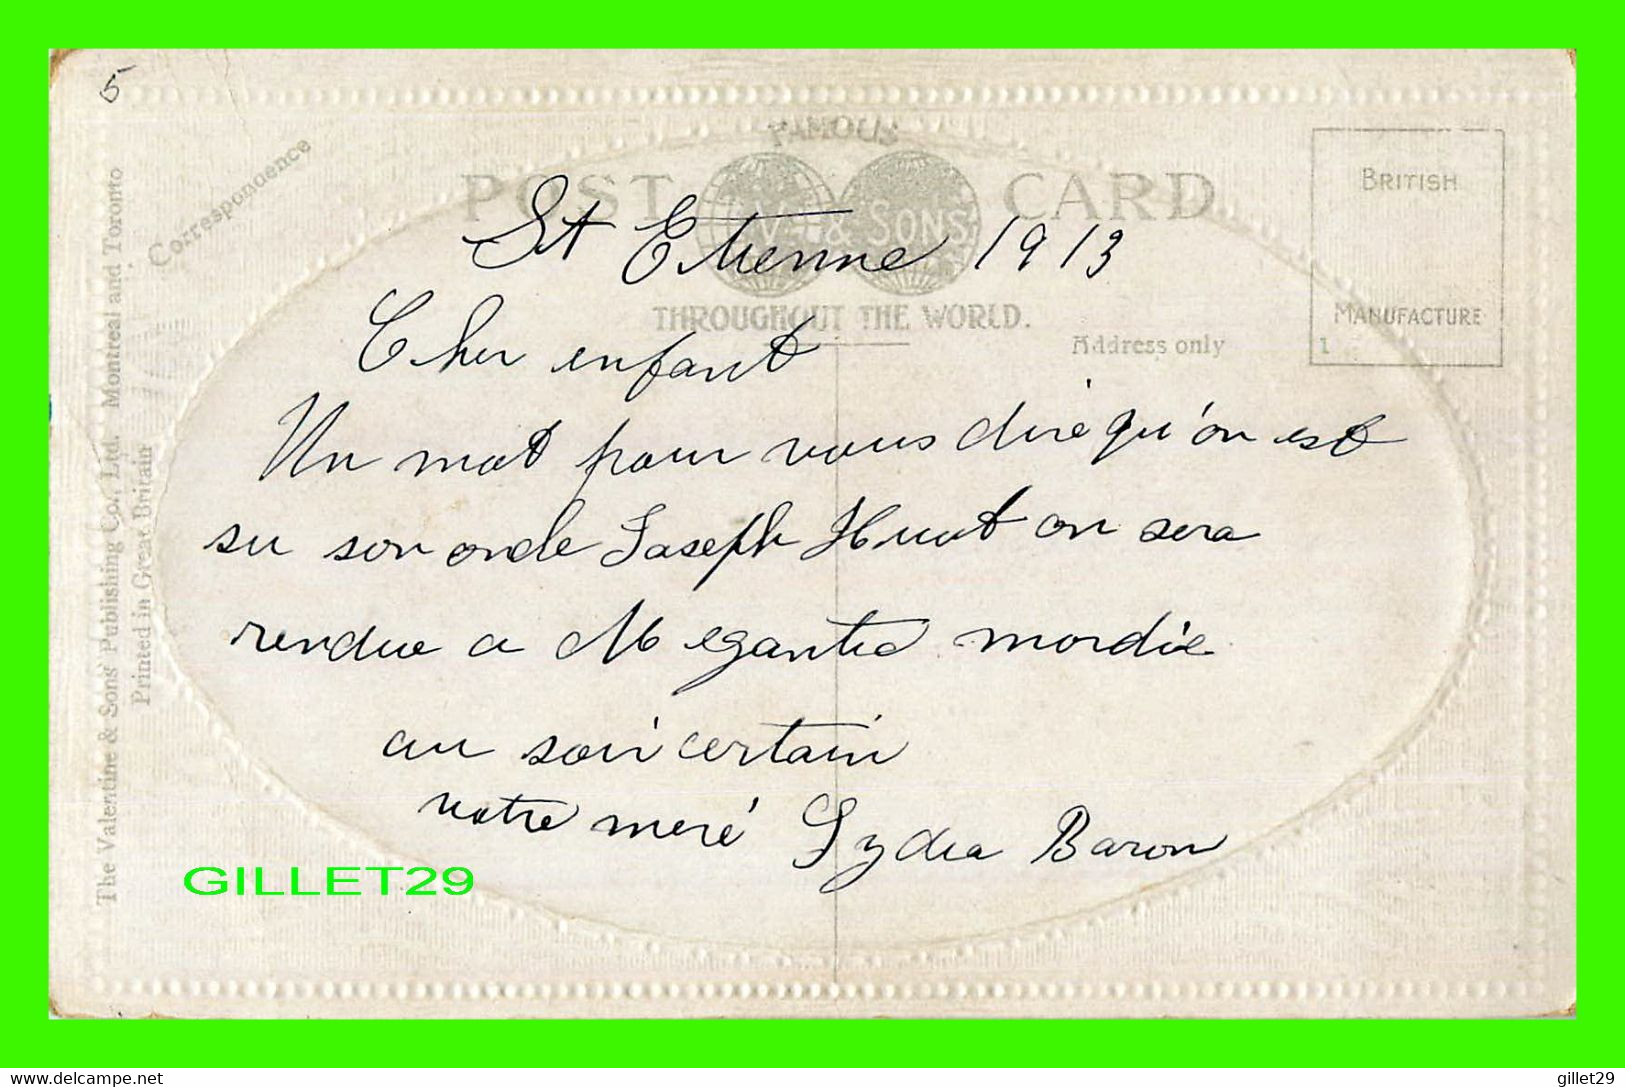 5
Correspondence
The Valentine & Sons' Publishing Co., Ltd. Montreal and Toronto
Printed in Great Britain
FAMOUS
POST CARD
V. & SONS
THROUGHOUT THE WORLD.
Address only
BRITISH
MANUFACTURE
1
St Etienne 1913
Cher enfant
Un mot pour vous dire qu'on est
su son oncle Joseph Huot on sera
rendue a Megantic mordie
au soir certain
votre meré Lydia Baron
GILLET29
delcampe.net
gillet29